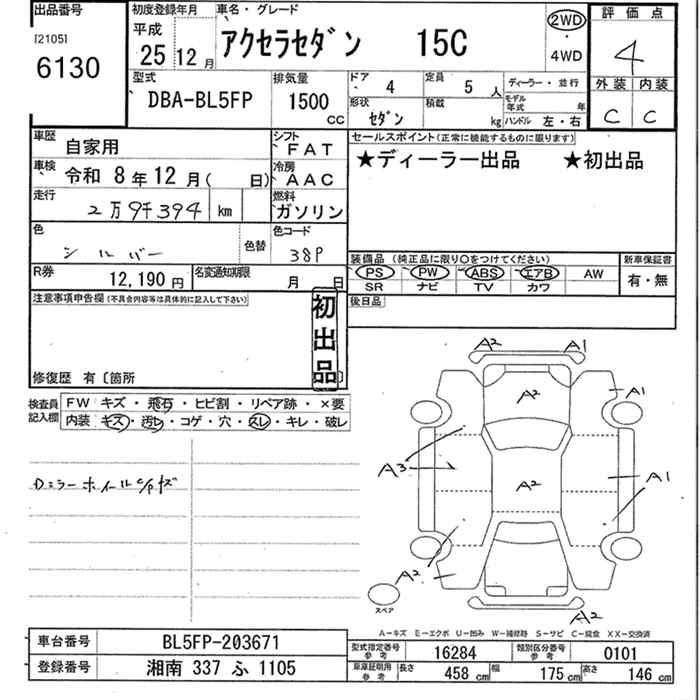 出品番号 初度登録年月 車名・グレード 評価点
[2105] 平成 アクセラセダン 15C 2WD
6130 25年 12月 ・ 4
4WD 外装 内装
型式 排気量 ドア 4 定員 5人 ディーラー・並行 C C
DBA-BL5FP 1500cc 形状 セダン 積載 kg モデル年式 年
ハンドル 左・右
車歴 自家用 シフト FAT セールスポイント(正常に機能するものに限ります)
車検 令和 8年 12月( 日) 冷房 AAC ★ディーラー出品 ★初出品
走行 2万9千394 km 燃料 ガソリン
色 シルバー 色替 色コード 38P
装備品 (純正品に限り○をつけてください) 新車保証書
PS PW ABS エアB AW 有・無
R券 12,190円 名変通知期限 月 日 SR ナビ TV カワ
注意事項申告欄(不具合内容等は具体的に記入して下さい) 後日品
初出品
修復歴 有〔箇所
検査員記入欄 FW キズ・飛石・ヒビ割・リペア跡・×要
内装 キズ・汚レ・コゲ・穴・スレ・キレ・破レ
A2 A1
A2 A1
A3 A1
A2
A2
スペア A2
A-キズ E-エクボ U-凹み W-補修跡 S-サビ C-腐食 XX-交換済
車台番号 BL5FP-203671 型式指定番号 参考 16284 類別区分番号 参考 0101
登録番号 湘南 337 ふ 1105 車庫証明用 参考 長さ 458cm 幅 175cm 高さ 146cm